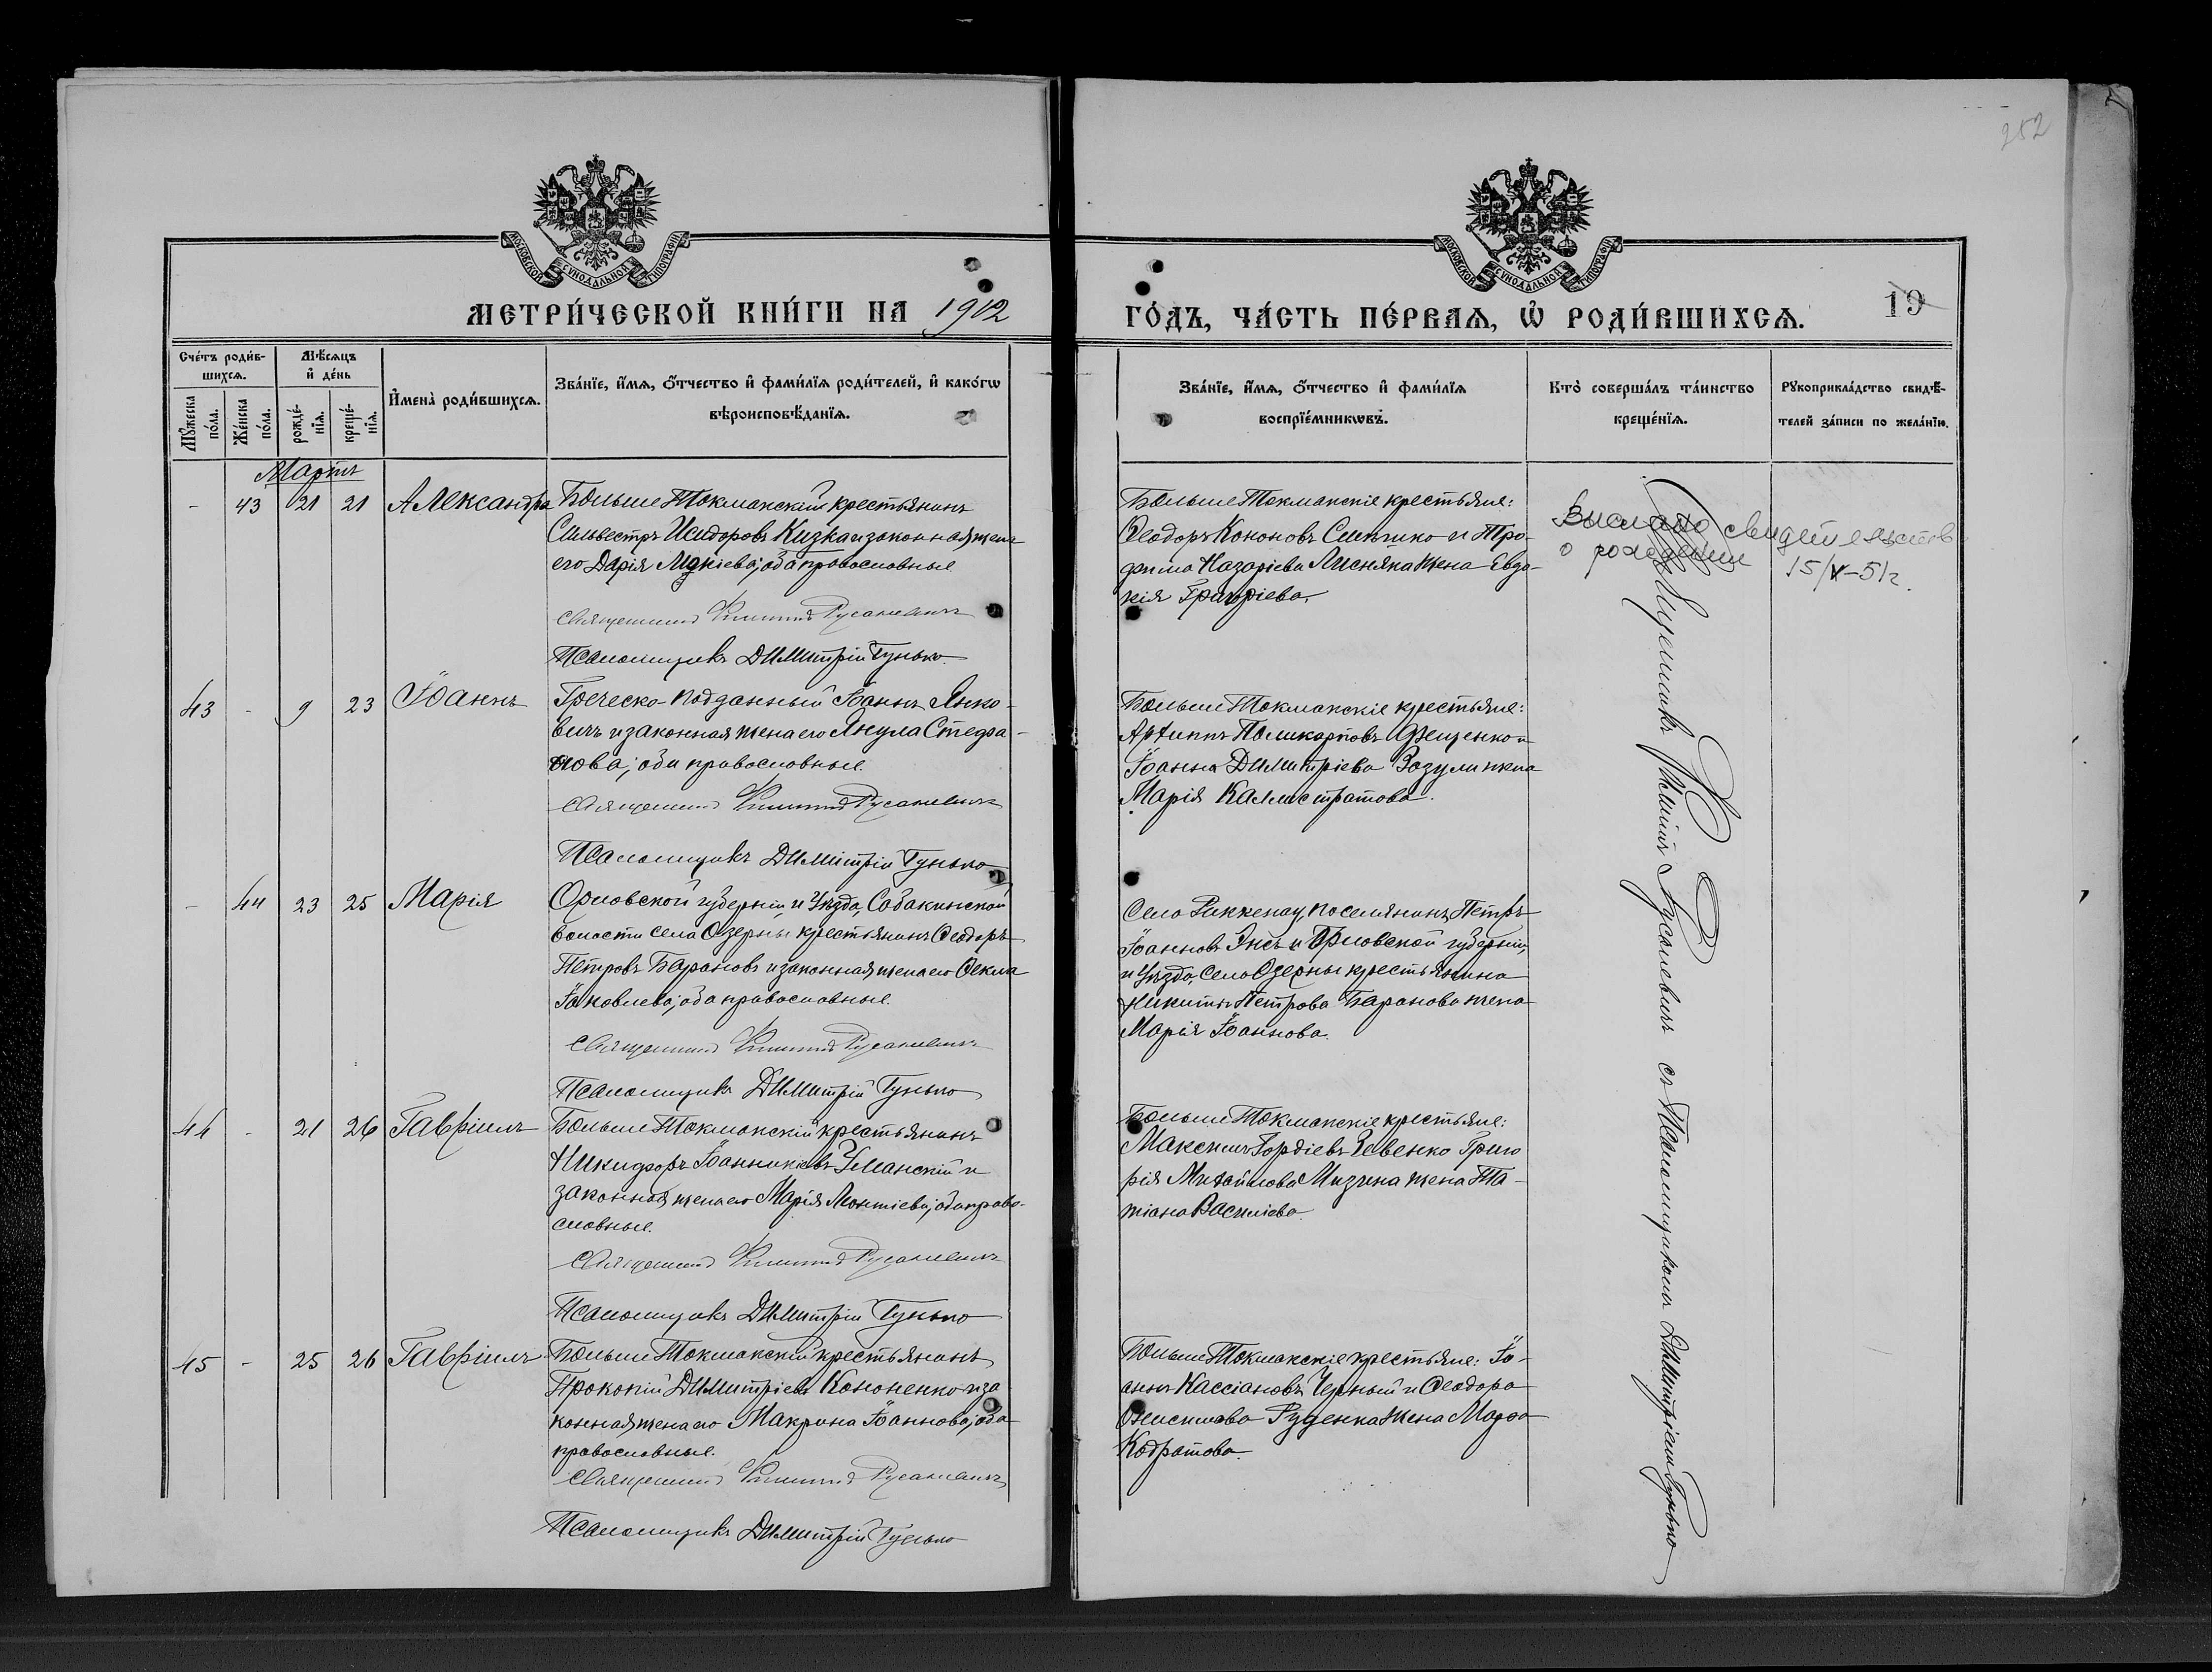 252
МОСКОВСКОЙ СѴНОДАЛЬНОЙ ТИПОГРАФІИ
МОСКОВСКОЙ СѴНОДАЛЬНОЙ ТИПОГРАФІИ
МЕТРИ́ЧЕСКОЙ КНИ́ГИ НА 1902
ГО́ДЪ, ЧА́СТЬ ПЕ́РВАЯ, Ѡ҆ РОДИ́ВШИХСЯ.
19
Сче́тъ роди́в-
шихся.
Мꙋ́жеска по́ла.
Же́нска по́ла.
Мѣ́сяцъ
и҆ де́нь
рожде́-
нїя.
креще́-
нїя.
И҆мена̀ роди́вшихся.
Зва́нїе, и҆́мя, ѻ҆́тчество и҆ фами́лїя роди́телей, и҆ како́гѡ
вѣроисповѣ́данїя.
Зва́нїе, и҆́мя, ѻ҆́тчество и҆ фами́лїя
воспрїе́мникѡвъ.
Кто̀ соверша́лъ та́инство
креще́нїя.
Рꙋкоприкла́дство свидѣ́-
телей за́писи по жела́нїю.
Мартъ
- 43 21 21 Александра
Больше Токмакскій крестьянинъ
Сильвестръ Исидоровъ Кизка и законная жена
его Дарія; оба православные
Священникъ Русаневичъ
Псаломщикъ Димитрій Гунько
Больше Токмакскіе крестьяне:
Ѳеодоръ Кононовъ и Тро-
фима Назаріева Лисняка жена Евдо-
кія Григоріева.
Выслано свидетельство
о рождении 15/V-51г.
43 - 9 23 Іоаннъ
Греческо-подданный Іоаннъ Янко-
вичъ и законная жена его Янула Стефа-
нова; оба православные.
Священникъ Русаневичъ
Псаломщикъ Димитрій Гунько
Больше Токмакскіе крестьяне:
Архиппъ Поликарповъ и
Іоанна Димитріева Зозули жена
Марія Каллистратова.
- 44 23 25 Марія
Орловской губерніи, и Уѣзда, Собакинской
волости села Озерны крестьянинъ Ѳеодоръ
Петровъ Барановъ и законная жена его Ѳекла
Іаковлева; оба православные.
Священникъ Русаневичъ
Псаломщикъ Димитрій Гунько
Села Риккенау, поселянинъ Петръ
Іоанновъ Энсъ и Орловской губерніи,
и Уѣзда, Села Озерны крестьянина
Никиты Петрова Баранова жена
Марія Іоаннова.
44 - 21 26 Гавріилъ
Больше Токмакскій крестьянинъ
Никифоръ Іоанникіевъ Уманскій и
законная жена его Марія Леонтіева; оба право-
славные.
Священникъ Русаневичъ
Псаломщикъ Димитрій Гунько
Больше Токмакскіе крестьяне:
Максимъ Гордіевъ Левенко Григо
рія Михайлова Мизина жена Та-
тіана Василіева.
45 - 25 26 Гавріилъ
Больше Токмакскій крестьянинъ
Прокопій Димитріевъ Кононенко и за
конная жена его Макрина Іоаннова; оба
православные.
Священникъ Русаневичъ
Псаломщикъ Димитрій Гунько
Больше Токмакскіе крестьяне: Іо-
аннъ Кассіановъ Черный и Ѳеодора
Онисимова Руденка жена Марѳа
Кодратова.
Священникъ Русаневичъ съ Псаломщикомъ Димитріемъ Гунько